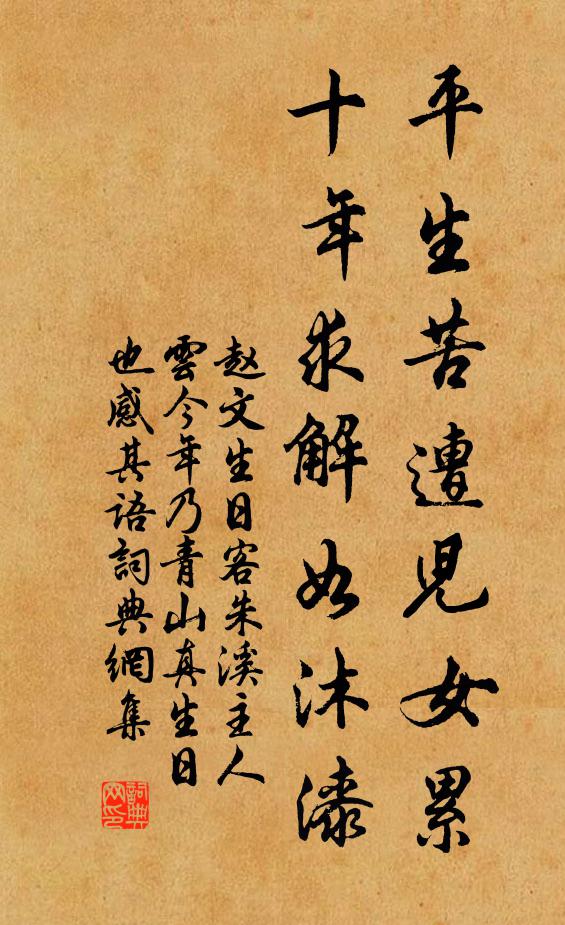 平生苦遭兒女累
十年求解如沐漆
赵文生日客朱溪主人
雲今年乃青山真生日
也感其語詞典網集
詞典
网印